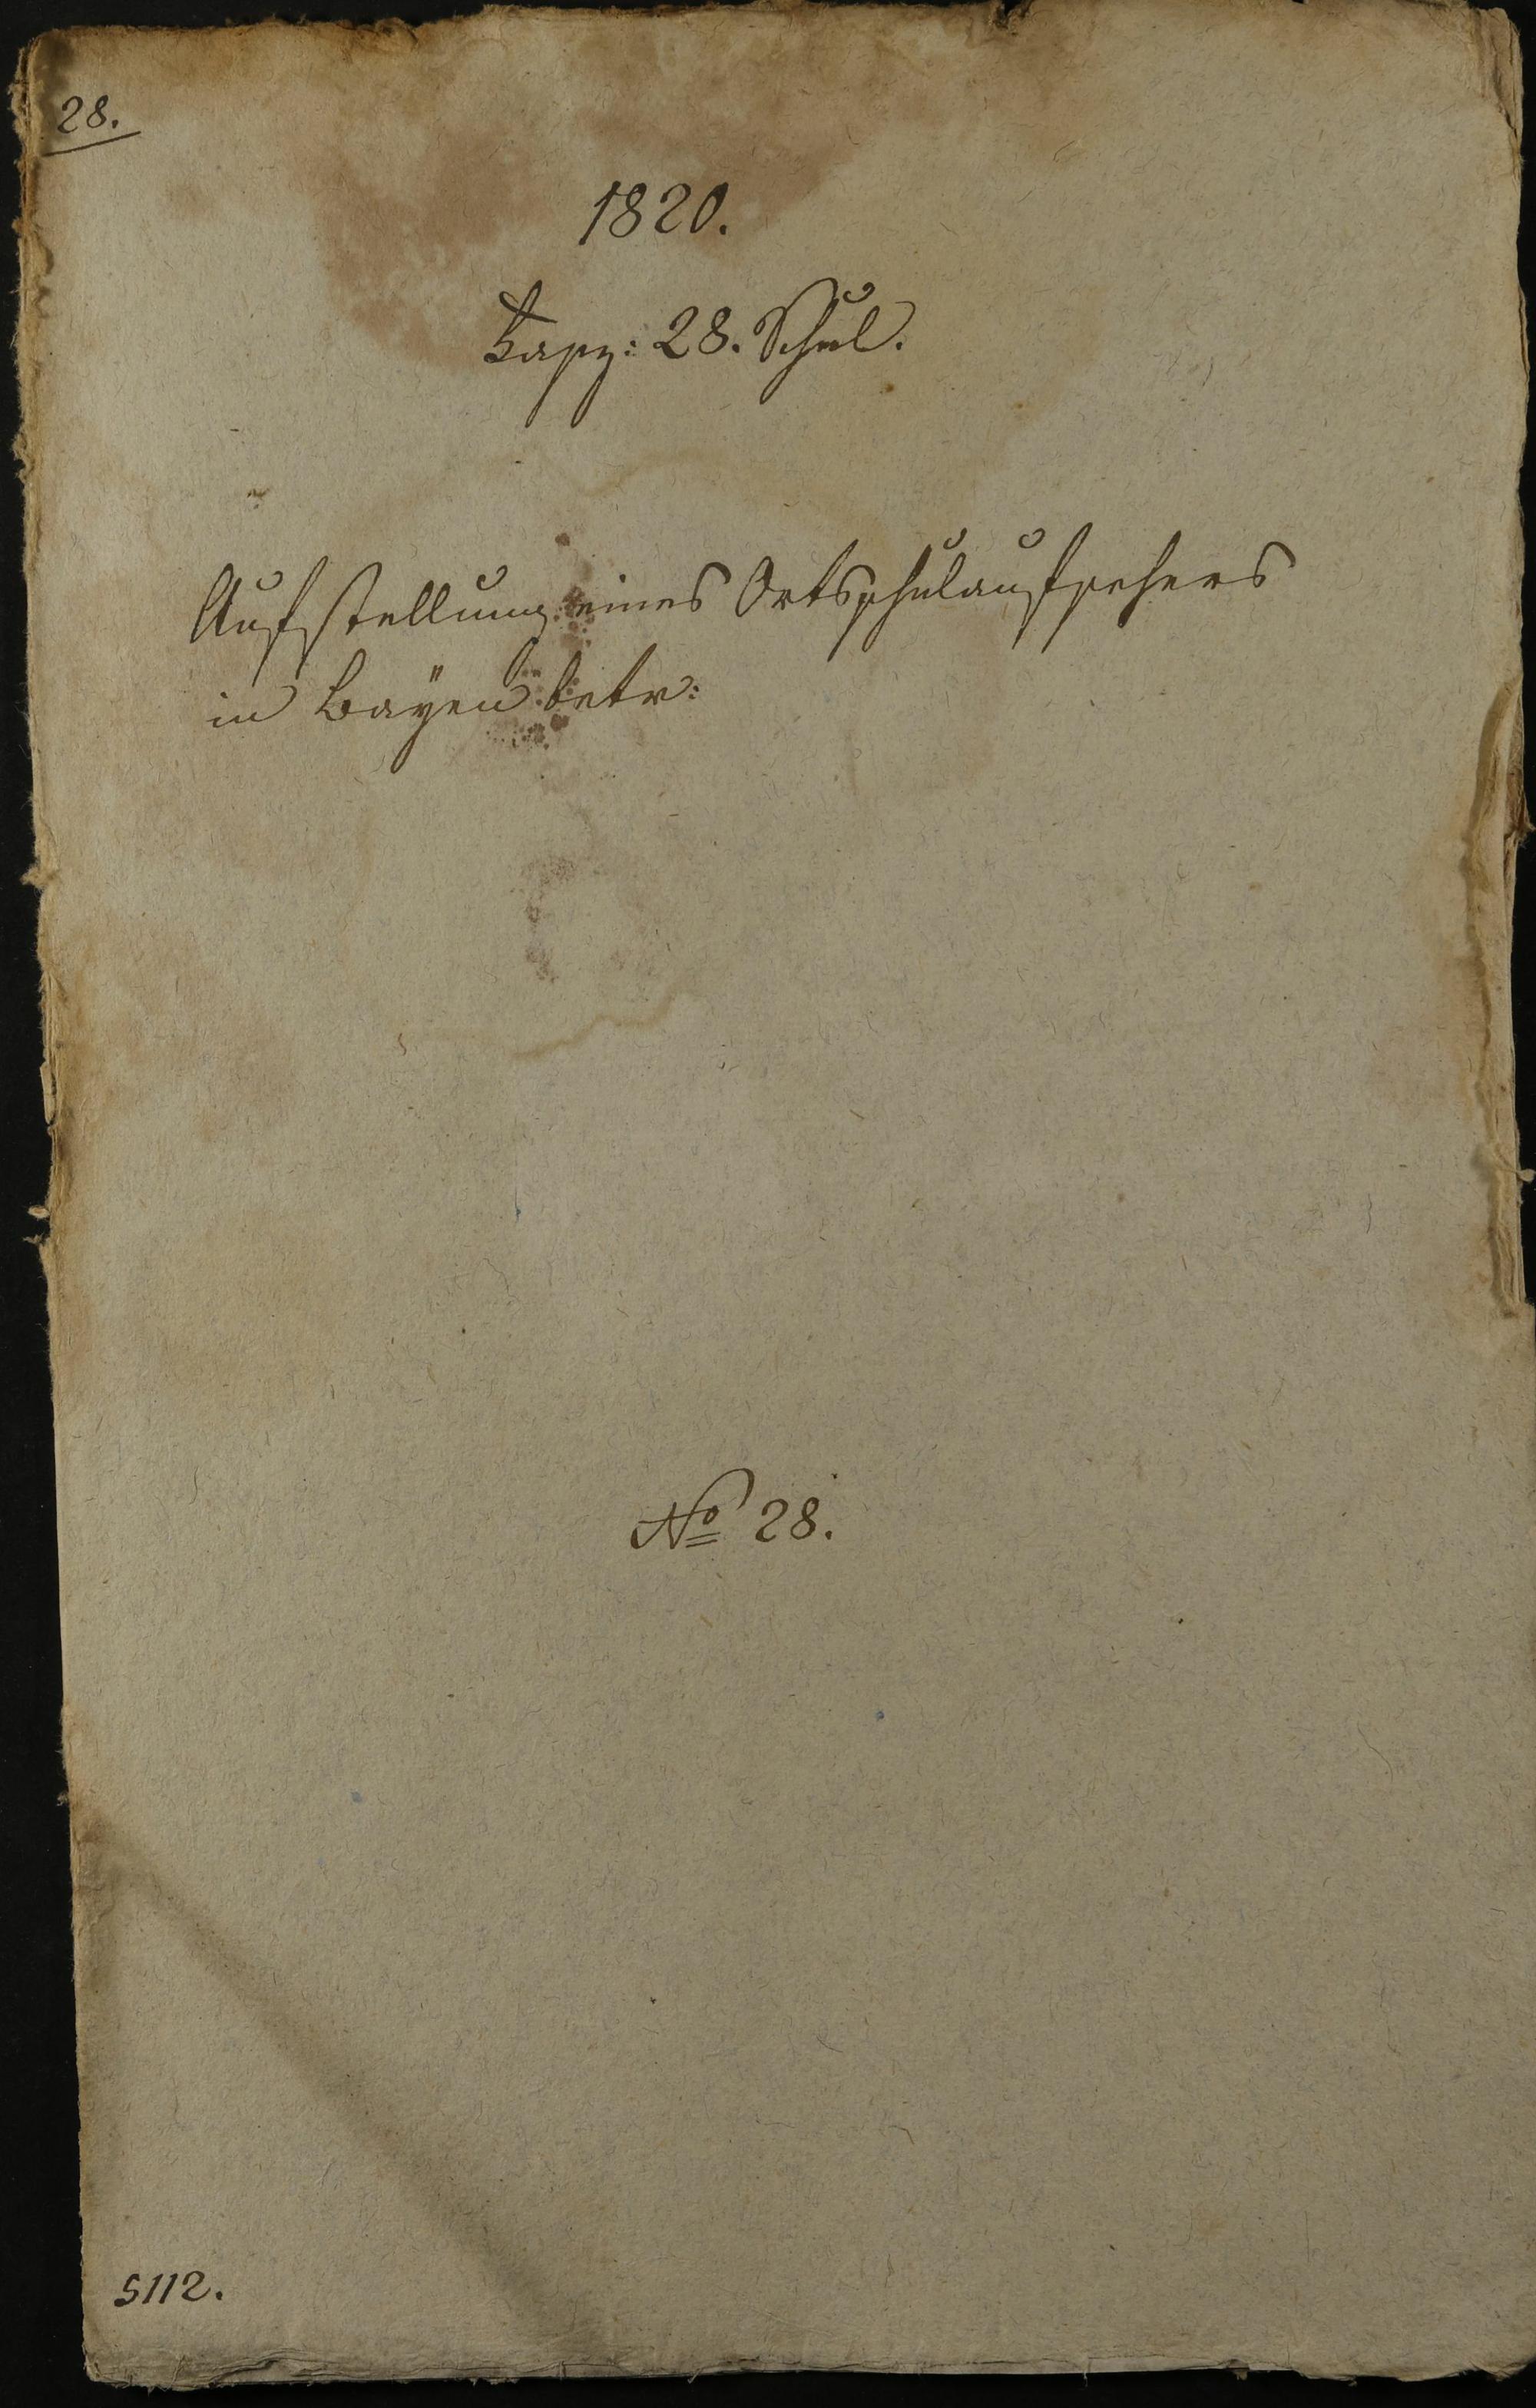 28.
1820.
Kapz: 28. Schul.
Aufstellung eines Ortsschulaufsehers
in Bayen betr:
No 28.
5112.